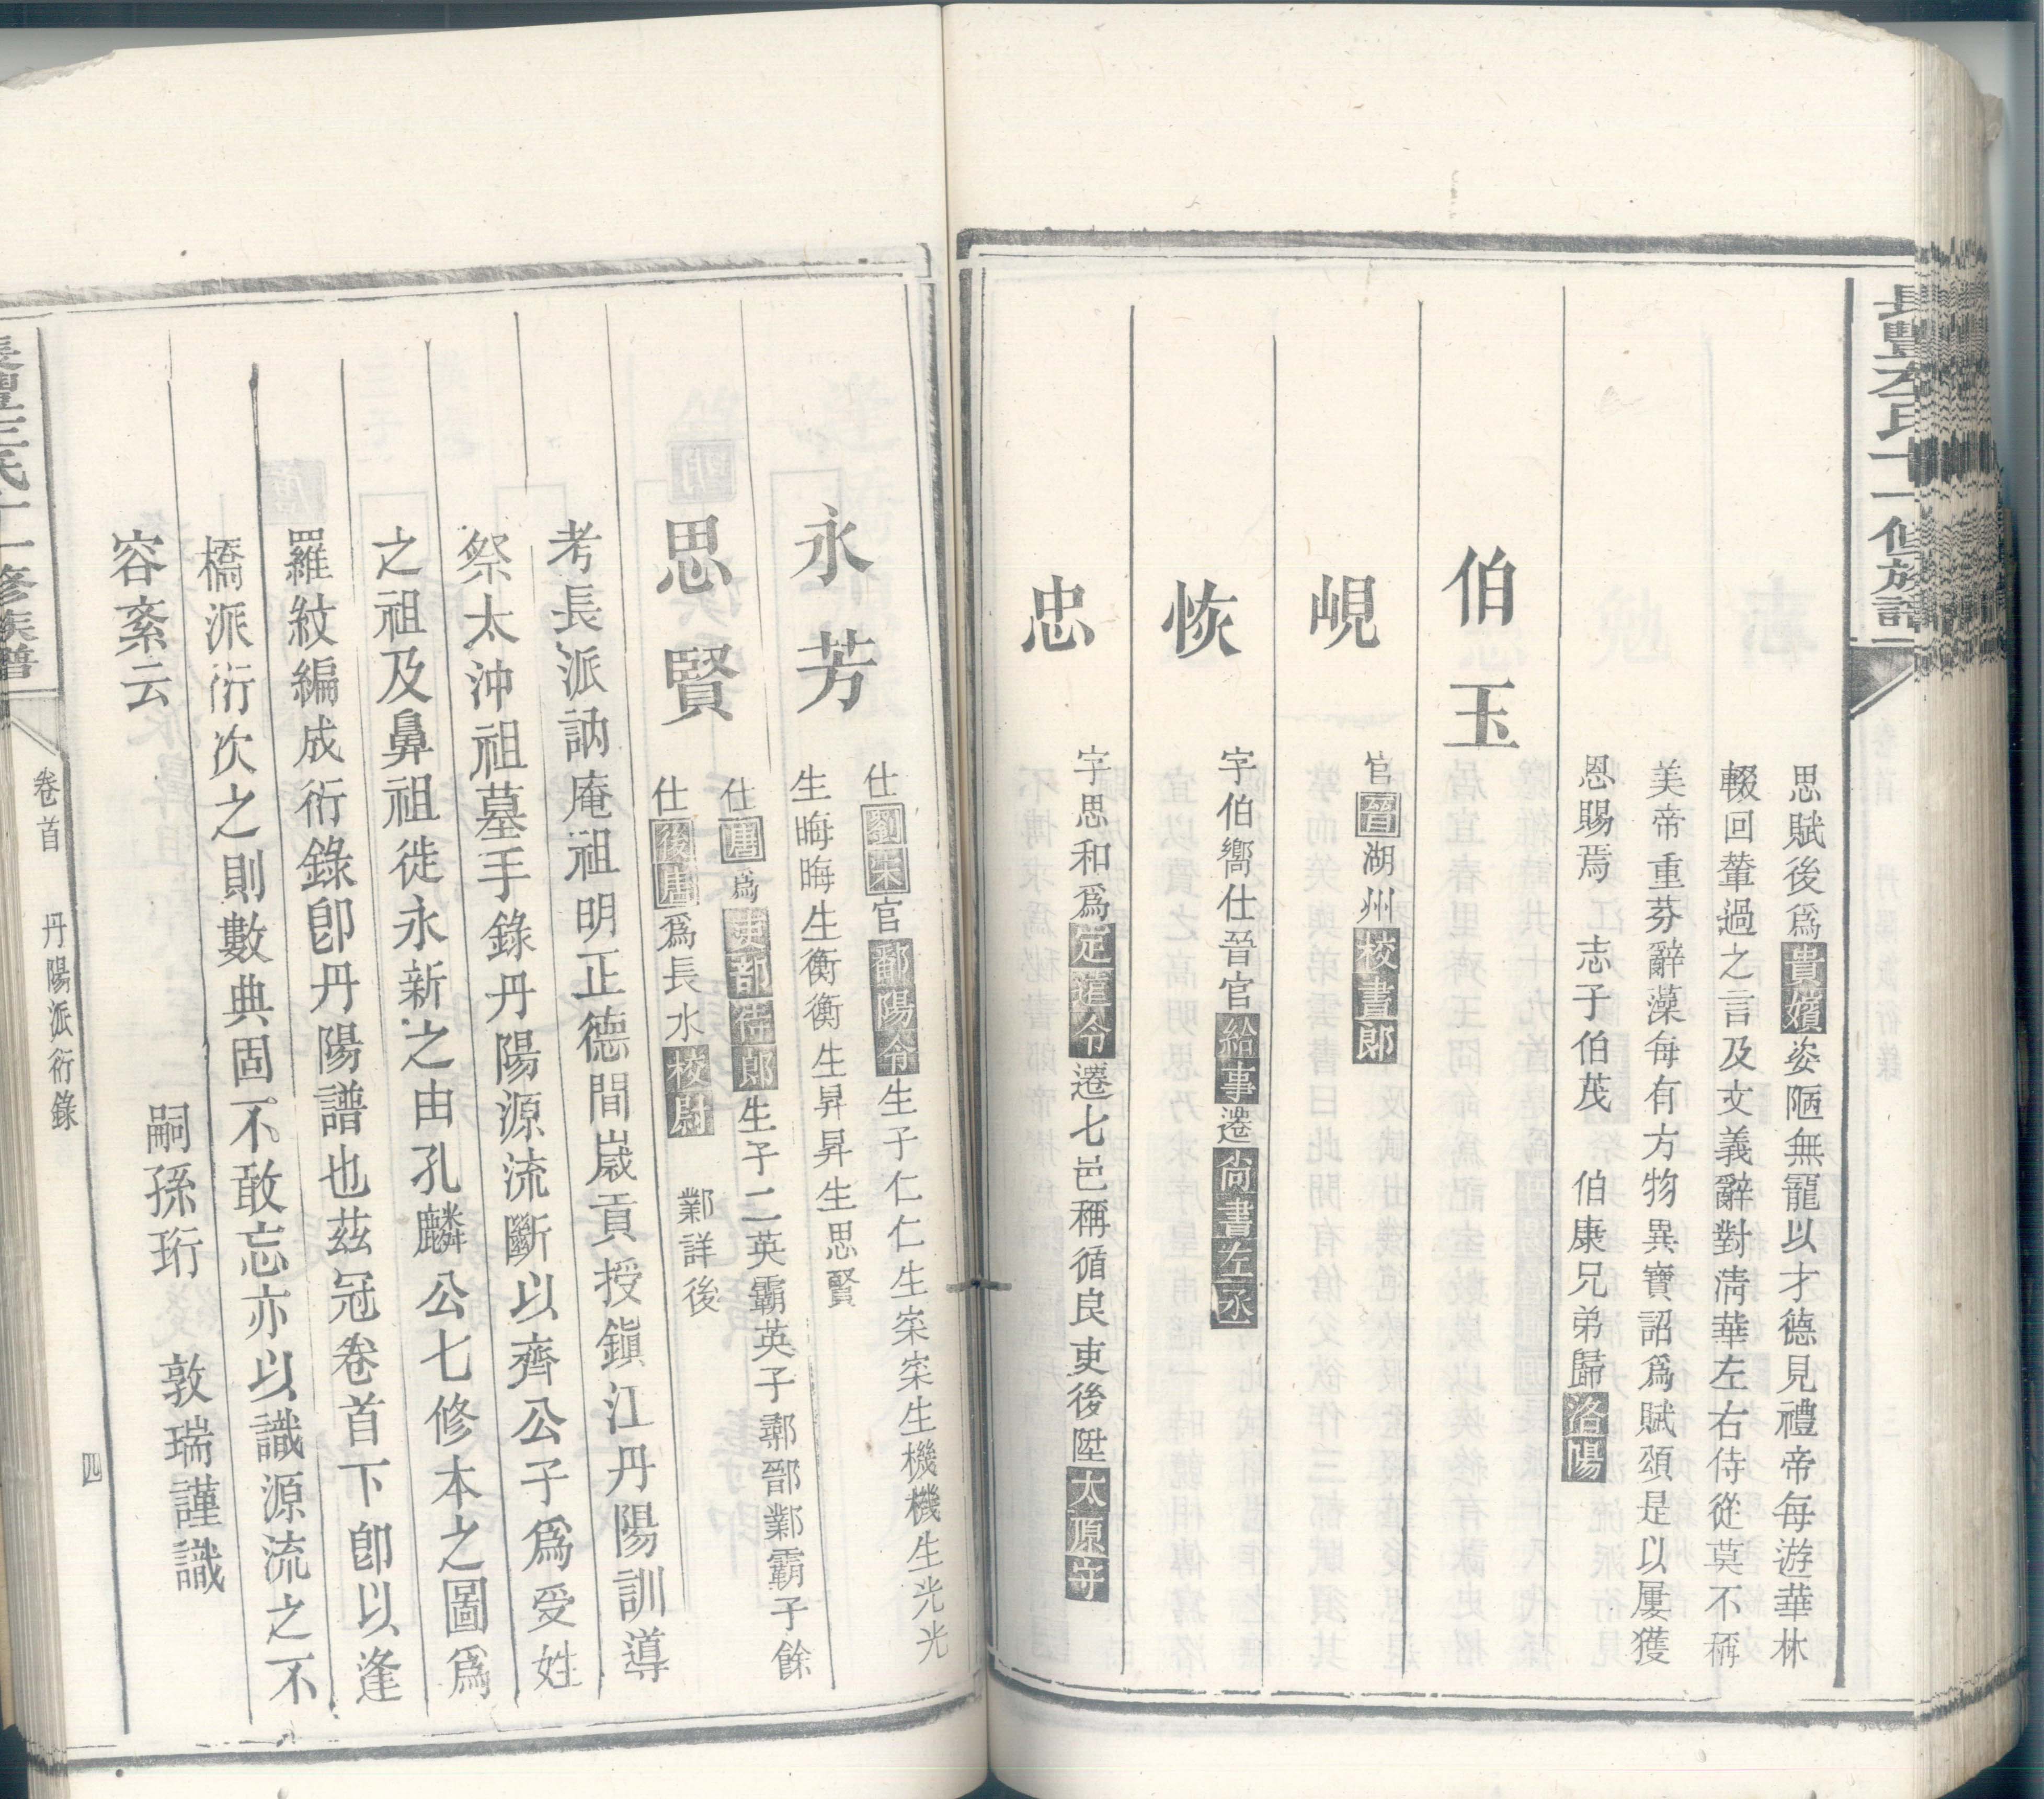 思賦後爲貴嬪姿陋無寵以才德見禮帝每游華林
輟回輦過之言及文義辭對淸華左右侍從莫不稱
美帝重芬辭藻每有方物異寶詔爲賦頌是以屢獲
恩賜焉　志子伯茂　伯康兄弟歸洛陽
伯玉
峴
官晉湖州校書郎
恢
字伯嚮仕晉官給事遷尙書左丞
忠
字思和爲定遠令遷七邑稱循良吏後陞太原守
永芳
仕劉宋官鄱陽令生子仁仁生寀寀生機機生光光
生晦晦生衡衡生昇昇生思賢
思賢
仕唐爲吏部侍郎生子二英霸英子鄣鄑鄴霸子餘
仕後唐爲長水校尉　鄴詳後
考長派訥庵祖明正德間嵗貢授鎭江丹陽訓導
祭太沖祖墓手錄丹陽源流斷以齊公子爲受姓
之祖及鼻祖徙永新之由孔麟公七修本之圖爲
羅紋編成衍錄卽丹陽譜也茲冠卷首下卽以逢
橋派衍次之則數典固不敢忘亦以識源流之不
容紊云
嗣孫珩　敦瑞謹識
卷首　丹陽派衍錄
四